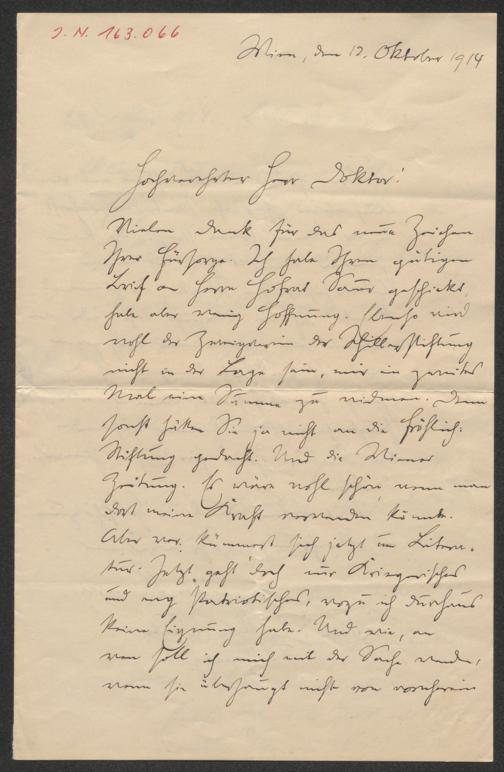 J. N. 163.066
Wien, den 12. Oktober 1914
Hochverehrter Herr Doktor!
Vielen Dank für das neue Zeichen
Ihrer Fürsorge. Ich habe Ihren gütigen
Brief an Herrn Hofrat Sauer geschickt,
habe aber wenig Hoffnung. Ebenso wird
wohl der Zweigverein der Schillerstiftung
nicht in der Lage sein, mir ein zweites
Mal eine Summe zu widmen. Denn
sonst hätten Sie ja nicht an die Fröhlich-
Stiftung gedacht. Und die Wiener
Zeitung. Es wäre wohl schön, wenn man
dort meine Kraft verwenden könnte.
Aber wer kümmert sich jetzt um Litera-
tur. Jetzt geht doch nur Kriegerisches
und eng Patriotisches, wozu ich durchaus
keine Eignung habe. Und wie, an
wen soll ich mich mit der Sache wenden,
wenn sie überhaupt nicht von vornherein